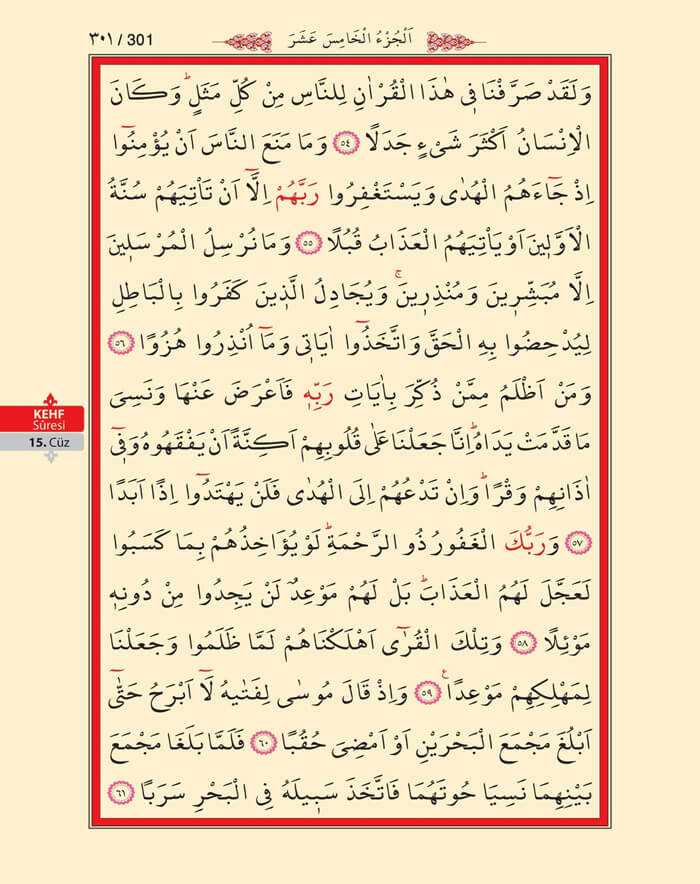 ٣٠١ / 301
اَلْجُزْءُ الْخَامِسَ عَشَرَ
وَلَقَدْ صَرَّفْنَا فٖي هٰذَا الْقُرْاٰنِ لِلنَّاسِ مِنْ كُلِّ مَثَلٍۜ وَكَانَ
الْاِنْسَانُ اَكْثَرَ شَيْءٍ جَدَلًا ﴿٥٤﴾ وَمَا مَنَعَ النَّاسَ اَنْ يُؤْمِنُٓوا
اِذْ جَٓاءَهُمُ الْهُدٰى وَيَسْتَغْفِرُوا رَبَّهُمْ اِلَّٓا اَنْ تَأْتِيَهُمْ سُنَّةُ
الْاَوَّلٖينَ اَوْ يَأْتِيَهُمُ الْعَذَابُ قُبُلًا ﴿٥٥﴾ وَمَا نُرْسِلُ الْمُرْسَلٖينَ
اِلَّا مُبَشِّرٖينَ وَمُنْذِرٖينَۚ وَيُجَادِلُ الَّذٖينَ كَفَرُوا بِالْبَاطِلِ
لِيُدْحِضُوا بِهِ الْحَقَّ وَاتَّخَذُٓوا اٰيَاتٖي وَمَٓا اُنْذِرُوا هُزُوًا ﴿٥٦﴾
وَمَنْ اَظْلَمُ مِمَّنْ ذُكِّرَ بِاٰيَاتِ رَبِّهٖ فَاَعْرَضَ عَنْهَا وَنَسِيَ
مَا قَدَّمَتْ يَدَاهُۜ اِنَّا جَعَلْنَا عَلٰى قُلُوبِهِمْ اَكِنَّةً اَنْ يَفْقَهُوهُ وَفٖٓي
اٰذَانِهِمْ وَقْرًاۜ وَاِنْ تَدْعُهُمْ اِلَى الْهُدٰى فَلَنْ يَهْتَدُٓوا اِذًا اَبَدًا
﴿٥٧﴾ وَرَبُّكَ الْغَفُورُ ذُو الرَّحْمَةِۜ لَوْ يُؤَاخِذُهُمْ بِمَا كَسَبُوا
لَعَجَّلَ لَهُمُ الْعَذَابَۜ بَلْ لَهُمْ مَوْعِدٌ لَنْ يَجِدُوا مِنْ دُونِهٖ
مَوْئِلًا ﴿٥٨﴾ وَتِلْكَ الْقُرٰٓى اَهْلَكْنَاهُمْ لَمَّا ظَلَمُوا وَجَعَلْنَا
لِمَهْلِكِهِمْ مَوْعِدًاࣖ ﴿٥٩﴾ وَاِذْ قَالَ مُوسٰى لِفَتٰيهُ لَٓا اَبْرَحُ حَتّٰٓى
اَبْلُغَ مَجْمَعَ الْبَحْرَيْنِ اَوْ اَمْضِيَ حُقُبًا ﴿٦٠﴾ فَلَمَّا بَلَغَا مَجْمَعَ
بَيْنِهِمَا نَسِيَا حُوتَهُمَا فَاتَّخَذَ سَبٖيلَهُ فِي الْبَحْرِ سَرَبًا ﴿٦١﴾
KEHF
Sûresi
15. Cüz